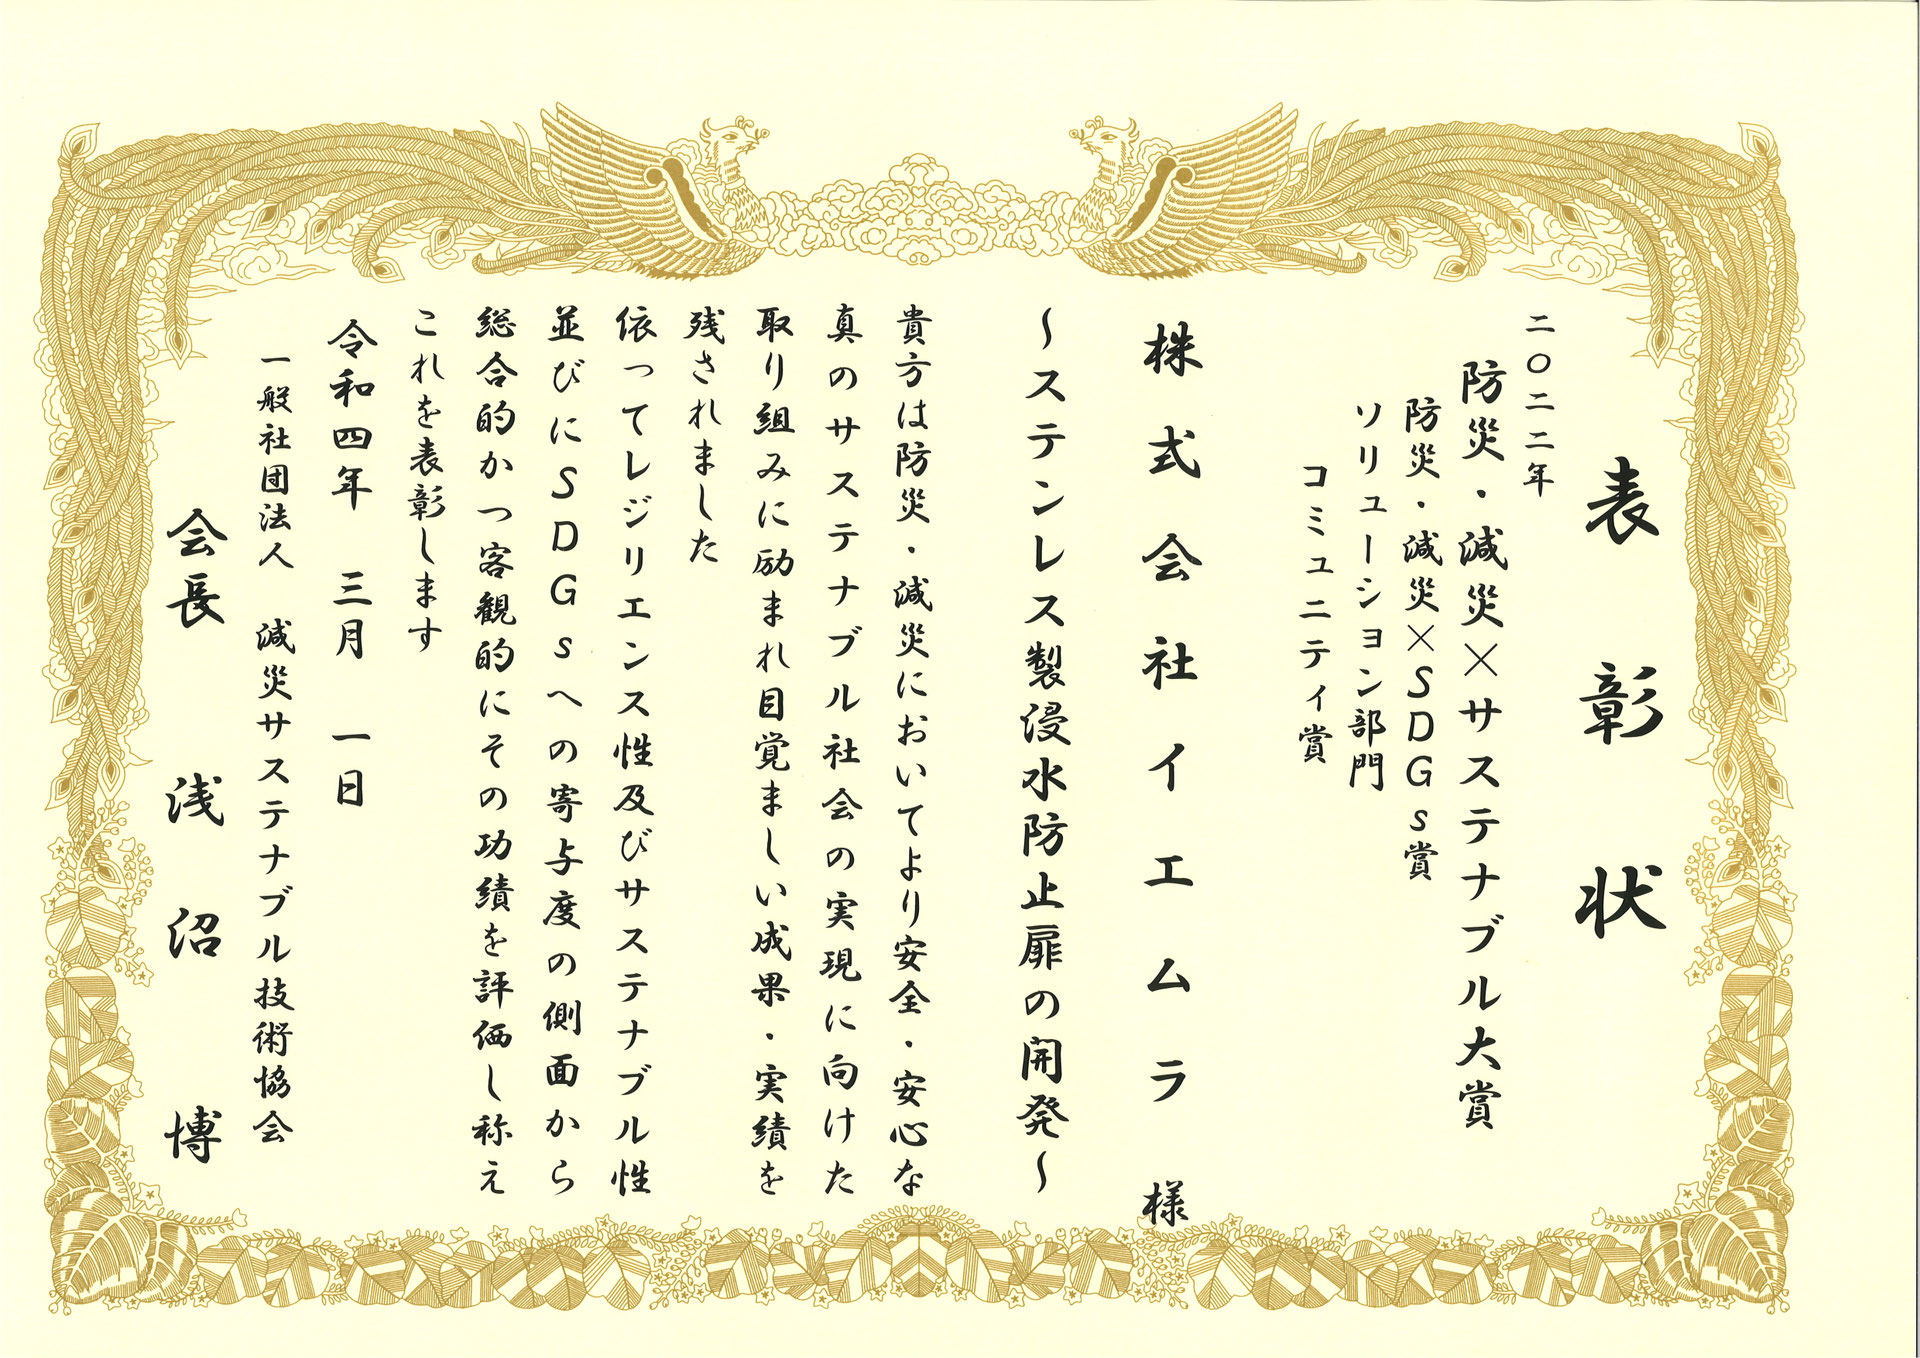 表彰状
二〇二二年
防災・減災×サステナブル大賞
防災・減災×SDGs賞
ソリューション部門
コミュニティ賞
株式会社イエムラ 様
～ステンレス製浸水防止扉の開発～
貴方は防災・減災においてより安全・安心な
真のサステナブル社会の実現に向けた
取り組みに励まれ目覚ましい成果・実績を
残されました
依ってレジリエンス性及びサステナブル性
並びにSDGsへの寄与度の側面から
総合的かつ客観的にその功績を評価し称え
これを表彰します
令和四年 三月 一日
一般社団法人 減災サステナブル技術協会
会長 浅沼 博